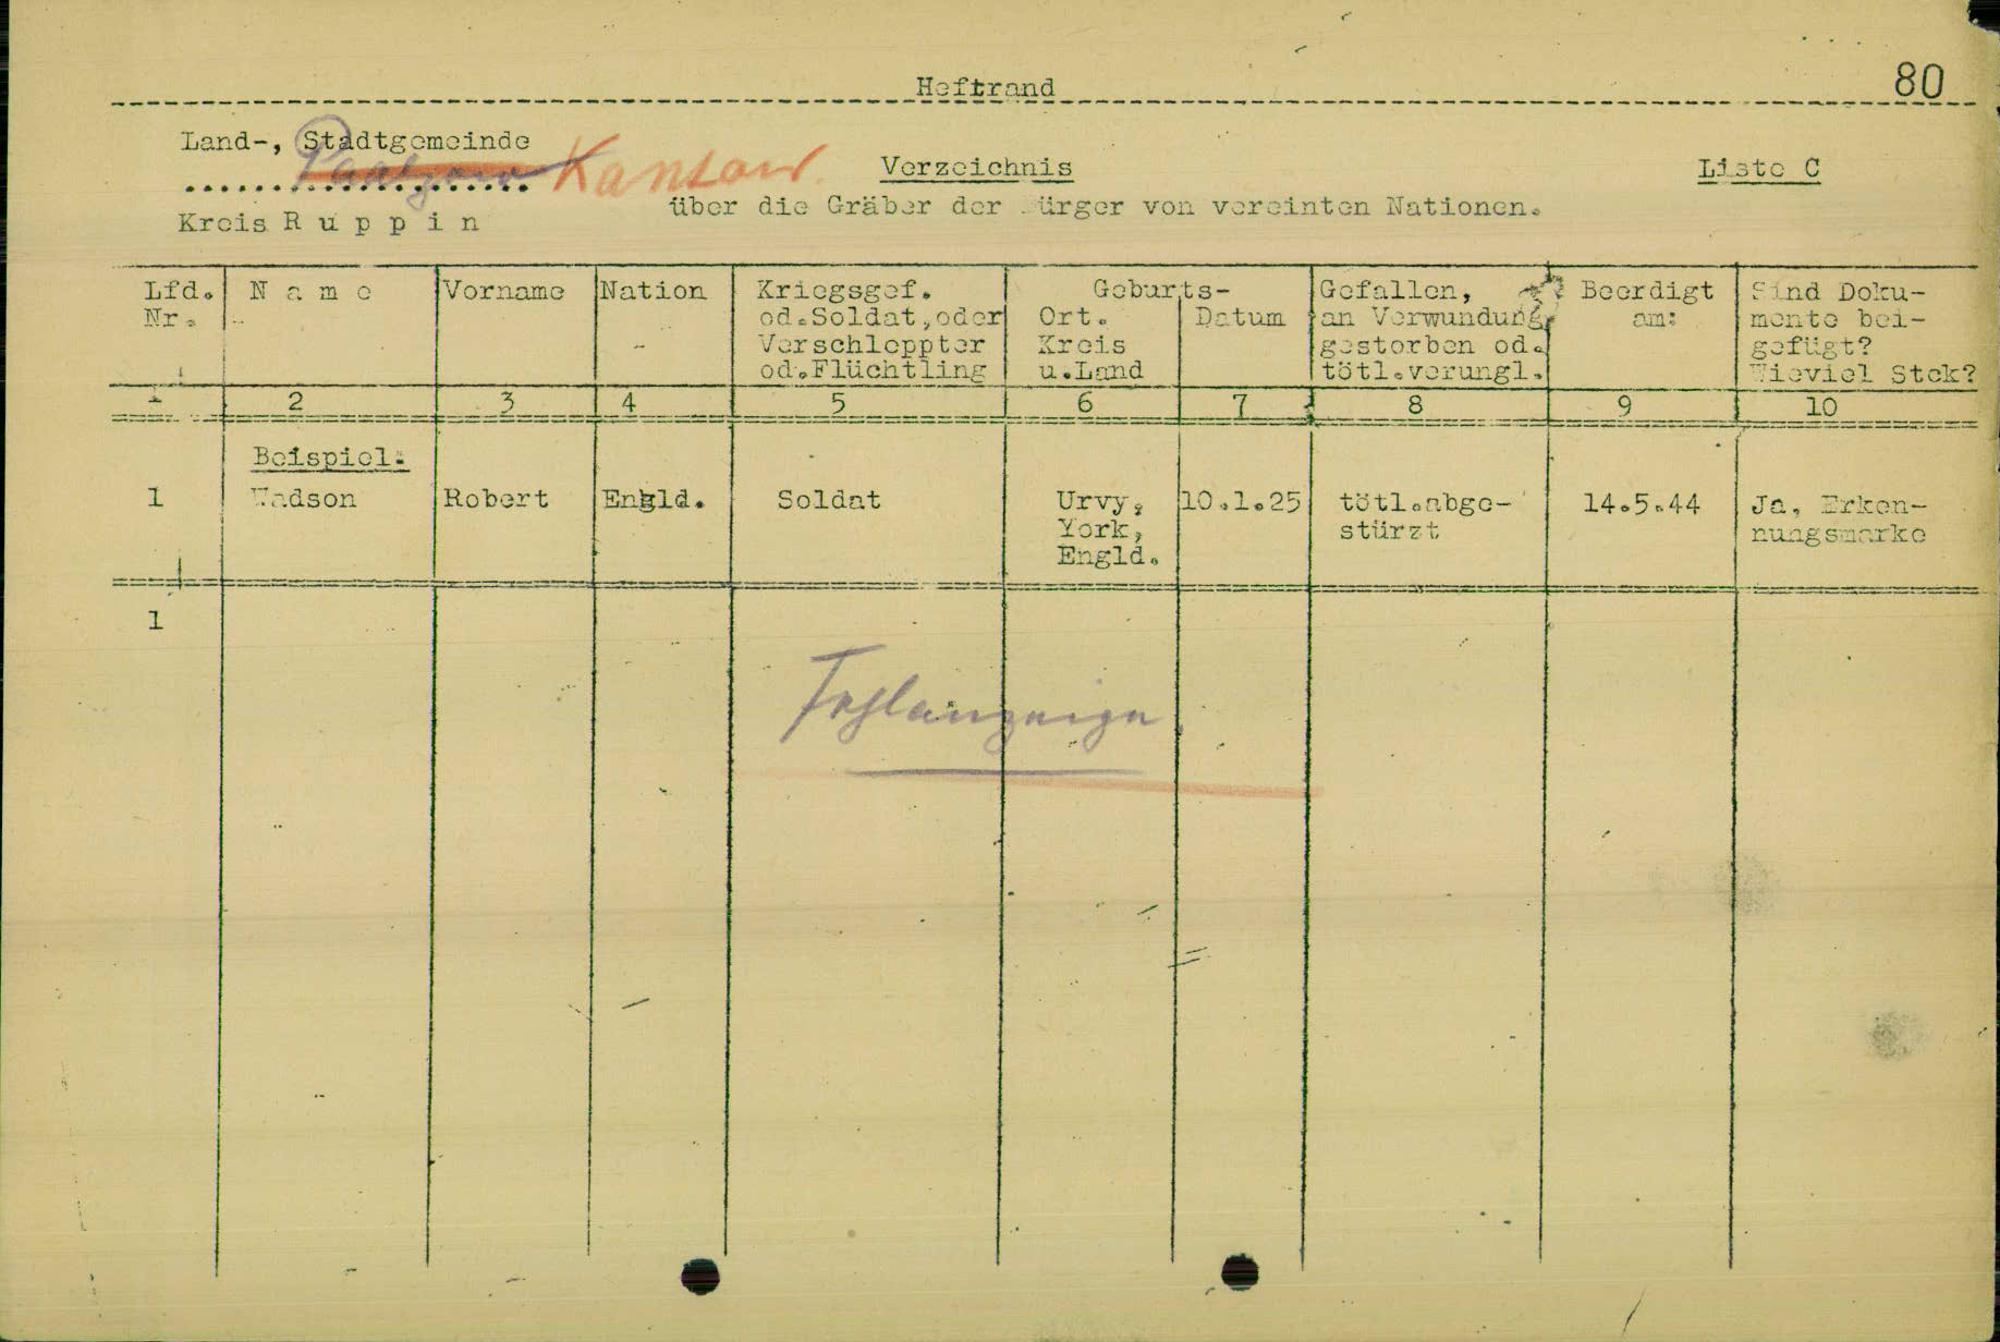 Heftrand
80
Land-, Stadtgemeinde
Kantow
Verzeichnis
Liste C
über die Gräber der Bürger von vereinten Nationen.
Kreis R u p p i n
Lfd. Nr.
N a m e
Vorname
Nation
Kriegsgef. od. Soldat, oder Verschleppter od. Flüchtling
Geburts-
Ort. Kreis u. Land
Datum
Gefallen, an Verwundung gestorben od. tötl. verungl.
Beerdigt am:
Sind Doku- mente bei- gefügt? Wieviel Stck?
1 2 3 4 5 6 7 8 9 10
Beispiel:
1 Wadson Robert Engld. Soldat Urvy, York, Engld. 10.1.25 tötl. abge- stürzt 14.5.44 Ja, Erken- nungsmarke
1
Fehlanzeige